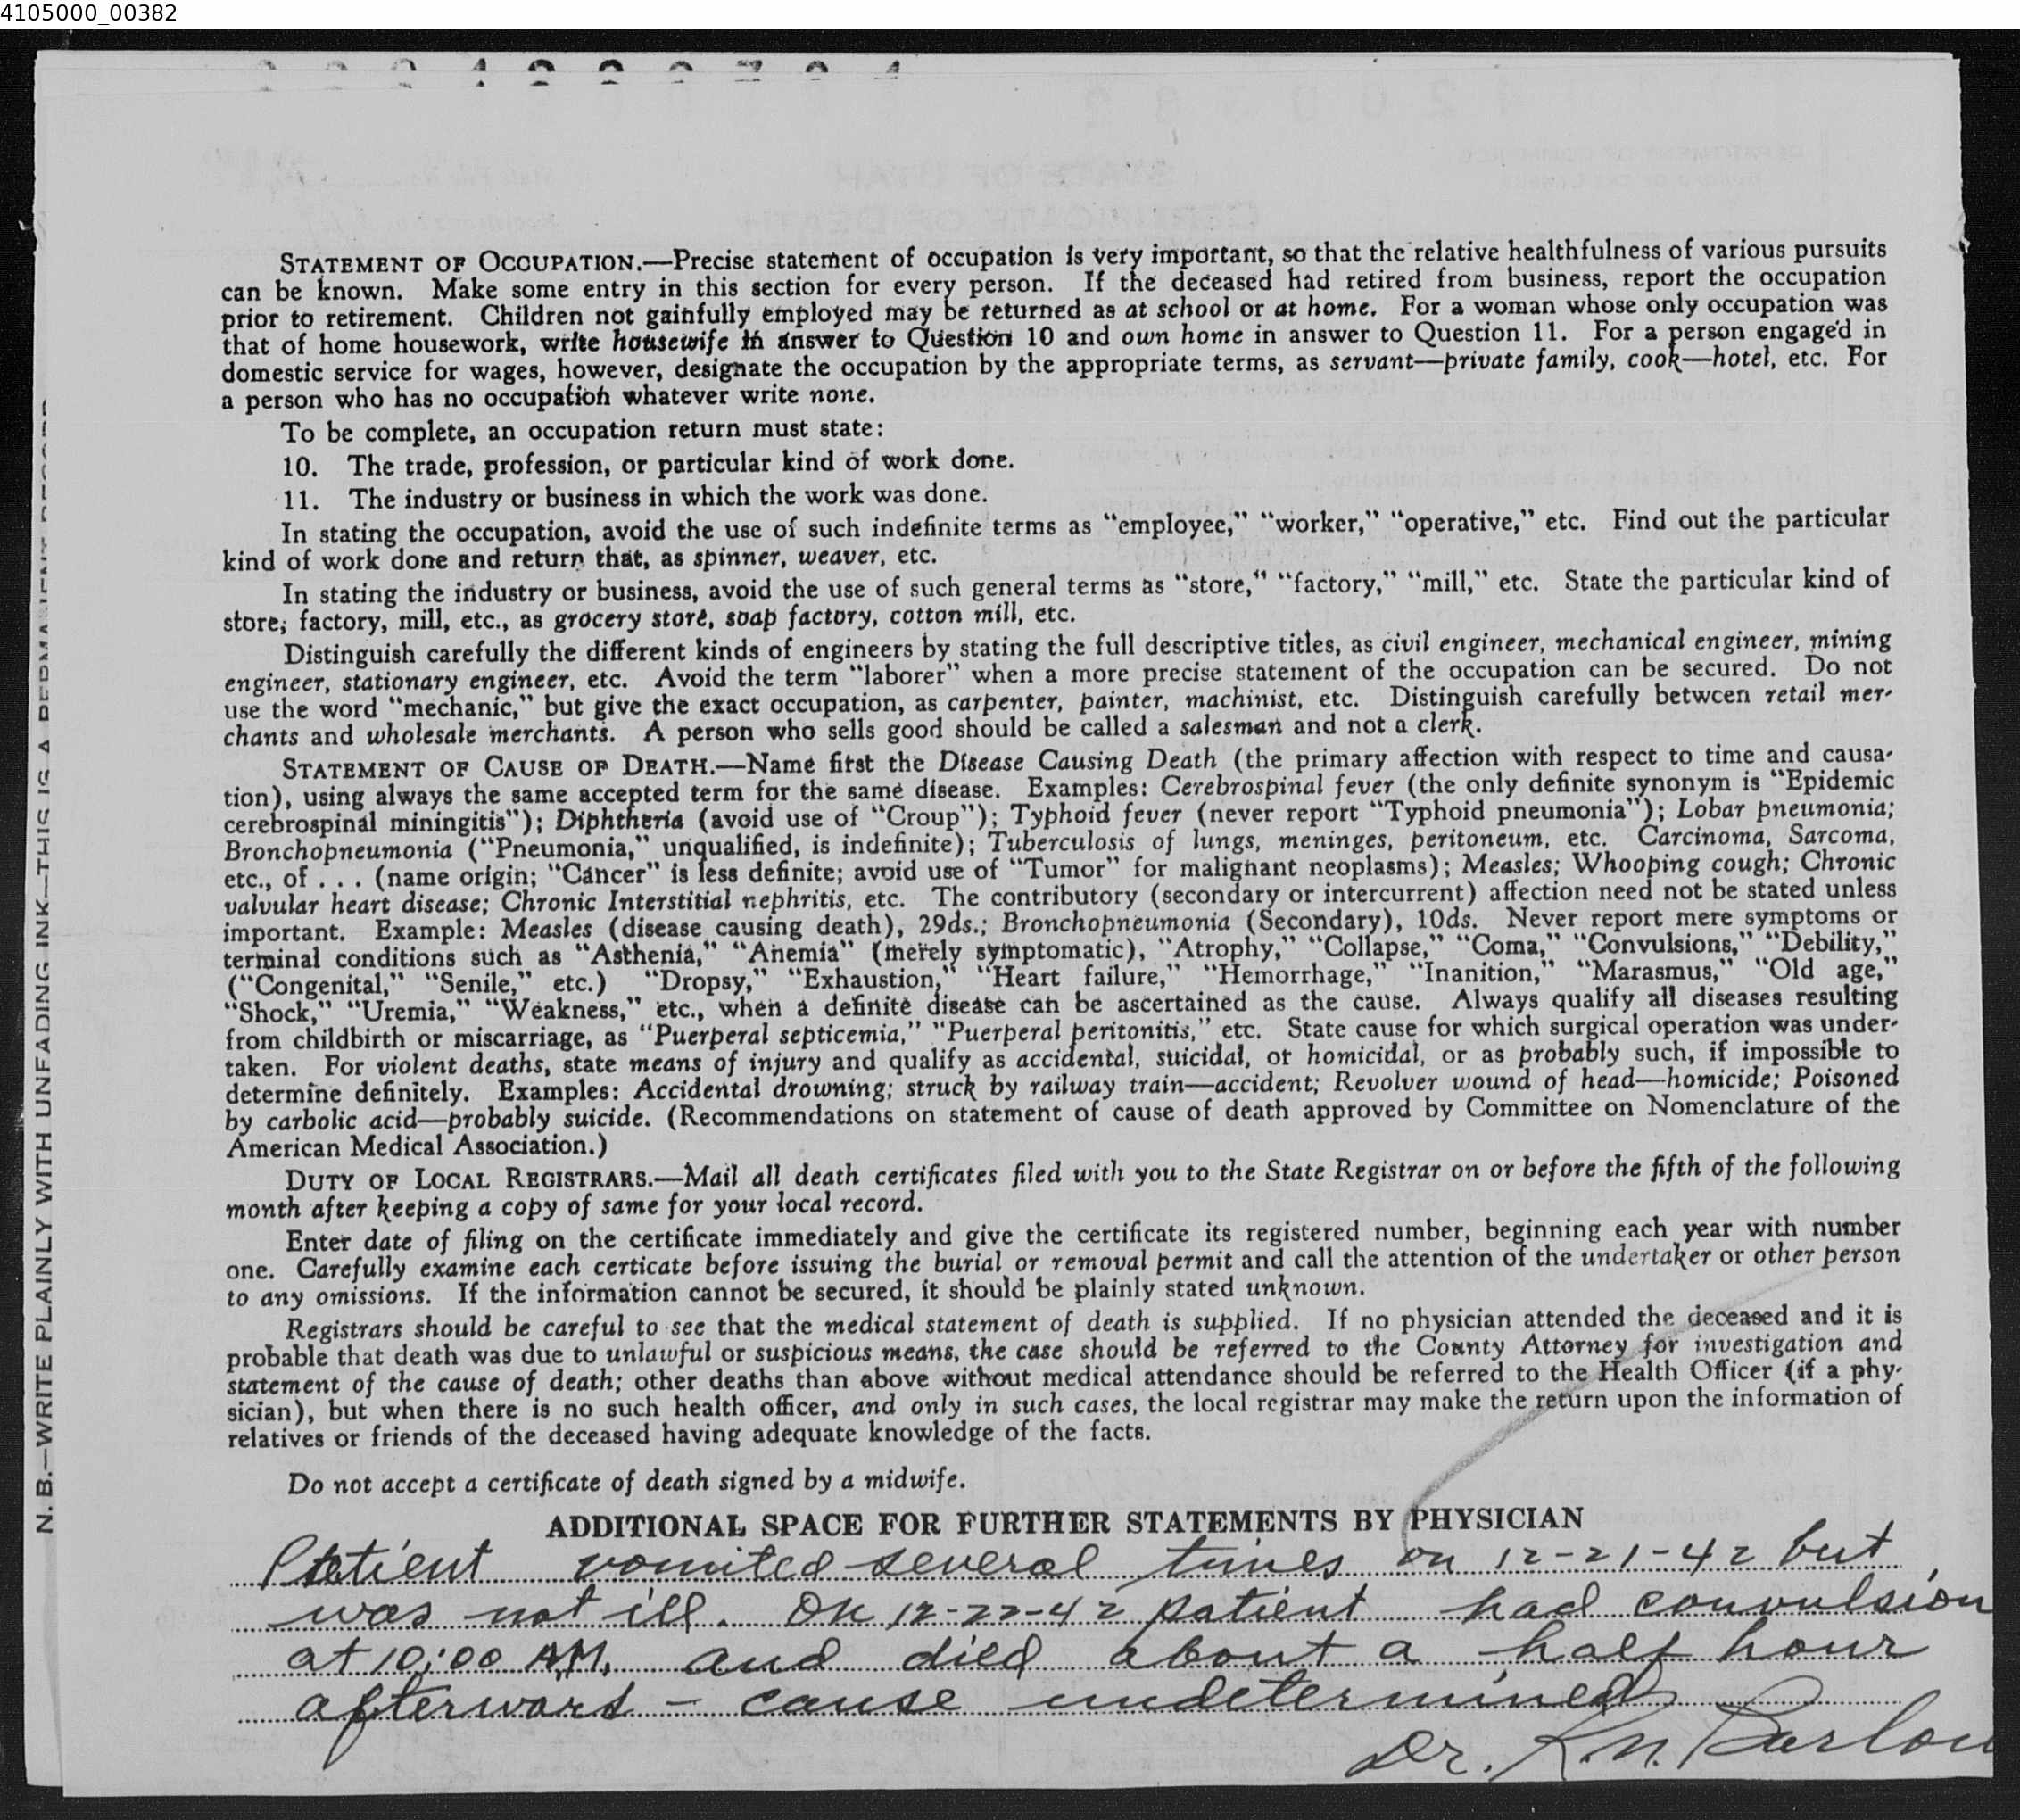 4105000_00382
STATEMENT OF OCCUPATION.—Precise statement of occupation is very important, so that the relative healthfulness of various pursuits
can be known. Make some entry in this section for every person. If the deceased had retired from business, report the occupation
prior to retirement. Children not gainfully employed may be returned as at school or at home. For a woman whose only occupation was
that of home housework, write housewife in answer to Question 10 and own home in answer to Question 11. For a person engaged in
domestic service for wages, however, designate the occupation by the appropriate terms, as servant—private family, cook—hotel, etc. For
a person who has no occupation whatever write none.
To be complete, an occupation return must state:
10. The trade, profession, or particular kind of work done.
11. The industry or business in which the work was done.
In stating the occupation, avoid the use of such indefinite terms as “employee,” “worker,” “operative,” etc. Find out the particular
kind of work done and return that, as spinner, weaver, etc.
In stating the industry or business, avoid the use of such general terms as “store,” “factory,” “mill,” etc. State the particular kind of
store, factory, mill, etc., as grocery store, soap factory, cotton mill, etc.
Distinguish carefully the different kinds of engineers by stating the full descriptive titles, as civil engineer, mechanical engineer, mining
engineer, stationary engineer, etc. Avoid the term “laborer” when a more precise statement of the occupation can be secured. Do not
use the word “mechanic,” but give the exact occupation, as carpenter, painter, machinist, etc. Distinguish carefully between retail mer-
chants and wholesale merchants. A person who sells good should be called a salesman and not a clerk.
STATEMENT OF CAUSE OF DEATH.—Name first the Disease Causing Death (the primary affection with respect to time and causa-
tion), using always the same accepted term for the same disease. Examples: Cerebrospinal fever (the only definite synonym is “Epidemic
cerebrospinal miningitis”); Diphtheria (avoid use of “Croup”); Typhoid fever (never report “Typhoid pneumonia”); Lobar pneumonia;
Bronchopneumonia (“Pneumonia,” unqualified, is indefinite); Tuberculosis of lungs, meninges, peritoneum, etc. Carcinoma, Sarcoma,
etc., of . . . (name origin; “Cancer” is less definite; avoid use of “Tumor” for malignant neoplasms); Measles; Whooping cough; Chronic
valvular heart disease; Chronic Interstitial nephritis, etc. The contributory (secondary or intercurrent) affection need not be stated unless
important. Example: Measles (disease causing death), 29ds.; Bronchopneumonia (Secondary), 10ds. Never report mere symptoms or
terminal conditions such as “Asthenia,” “Anemia” (merely symptomatic), “Atrophy,” “Collapse,” “Coma,” “Convulsions,” “Debility,”
(“Congenital,” “Senile,” etc.) “Dropsy,” “Exhaustion,” “Heart failure,” “Hemorrhage,” “Inanition,” “Marasmus,” “Old age,”
“Shock,” “Uremia,” “Weakness,” etc., when a definite disease can be ascertained as the cause. Always qualify all diseases resulting
from childbirth or miscarriage, as “Puerperal septicemia,” “Puerperal peritonitis,” etc. State cause for which surgical operation was under-
taken. For violent deaths, state means of injury and qualify as accidental, suicidal, or homicidal, or as probably such, if impossible to
determine definitely. Examples: Accidental drowning; struck by railway train—accident; Revolver wound of head—homicide; Poisoned
by carbolic acid—probably suicide. (Recommendations on statement of cause of death approved by Committee on Nomenclature of the
American Medical Association.)
DUTY OF LOCAL REGISTRARS.—Mail all death certificates filed with you to the State Registrar on or before the fifth of the following
month after keeping a copy of same for your local record.
Enter date of filing on the certificate immediately and give the certificate its registered number, beginning each year with number
one. Carefully examine each certicate before issuing the burial or removal permit and call the attention of the undertaker or other person
to any omissions. If the information cannot be secured, it should be plainly stated unknown.
Registrars should be careful to see that the medical statement of death is supplied. If no physician attended the deceased and it is
probable that death was due to unlawful or suspicious means, the case should be referred to the County Attorney for investigation and
statement of the cause of death; other deaths than above without medical attendance should be referred to the Health Officer (if a phy-
sician), but when there is no such health officer, and only in such cases, the local registrar may make the return upon the information of
relatives or friends of the deceased having adequate knowledge of the facts.
Do not accept a certificate of death signed by a midwife.
ADDITIONAL SPACE FOR FURTHER STATEMENTS BY PHYSICIAN
Patient vomited several times on 12-21-42 but
was not ill. On 12-22-42 patient had convulsion
at 10:00 A.M. and died about a half hour
afterward - cause undetermined
Dr. K.N. Barlow
N. B.—WRITE PLAINLY WITH UNFADING INK—THIS IS A PERMANENT RECORD